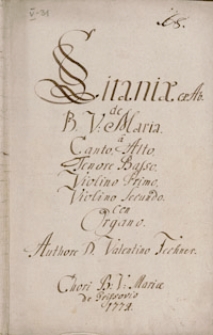 Litaniæ ex Ab.
de
B. V. Maria.
à
Canto, Alto
Tenore Basso.
Violino Primo,
Violino Secundo.
Con
Organo.
Authore D. Valentino Fechner.
Chori B: V: Mariæ
de
1772.